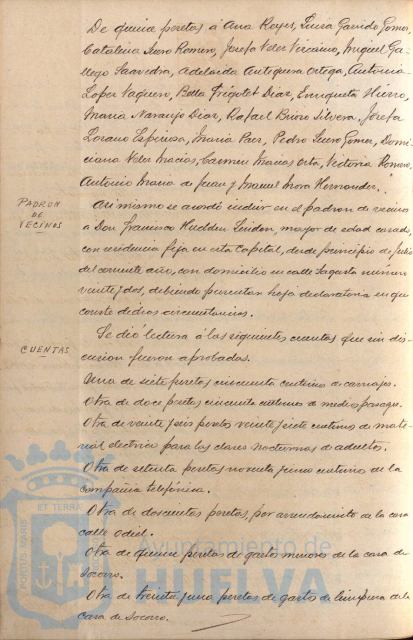 De quince pesetas á Ana Reyes, Luisa Garrido Gomez,
Catalina Suero Romero, Josefa Velez Vizcaino, Miguel Ga-
llego Saavedra, Adelaida Antequera Ortega, Antonia
Lopez Vaquero, Bella Trigo Diaz, Enriqueta Hierro,
Maria Naranjo Diaz, Rafael Brioso Silvera, Josefa
Lozano Espinosa, Maria Paez, Pedro Suero Gomez, Domi-
ciana Velez Macias, Carmen Macias Orta, Victoria Romero,
Antonio Maria de Juan y Manuel Mora Hernandez.
PADRON
DE
VECINOS
Asi mismo se acordó incluir en el padron de vecinos
a Don Francisco, mayor de edad casado,
con residencia fija en esta Capital, desde principio de Julio
del corriente año, con domicilio en calle Sagasta número
veintidos, debiendo presentar hoja declaratoria en que
conste dichas circunstancias.
CUENTAS
Se dió lectura á las siguientes cuentas que sin dis-
cusion fueron aprobadas.
Una de siete pesetas cincuenta centimos de carruajes.
Otra de doce pesetas cincuenta centimos de medios pasages.
Otra de veinte y seis pesetas veinte y siete centimos de mate-
rial electrico para las clases nocturnas de adultos.
Otra de setenta pesetas noventa y un centimos de la
compañia telefónica.
Otra de doscientas pesetas, por arrendamiento de la casa
calle Odiel.
Otra de quince pesetas de gastos menores de la casa de
Socorro.
Otra de treinta y una pesetas de gastos de limpieza de la
casa de Socorro.
PORTUS MARIS ET TERRAE
Ayuntamiento de
HUELVA